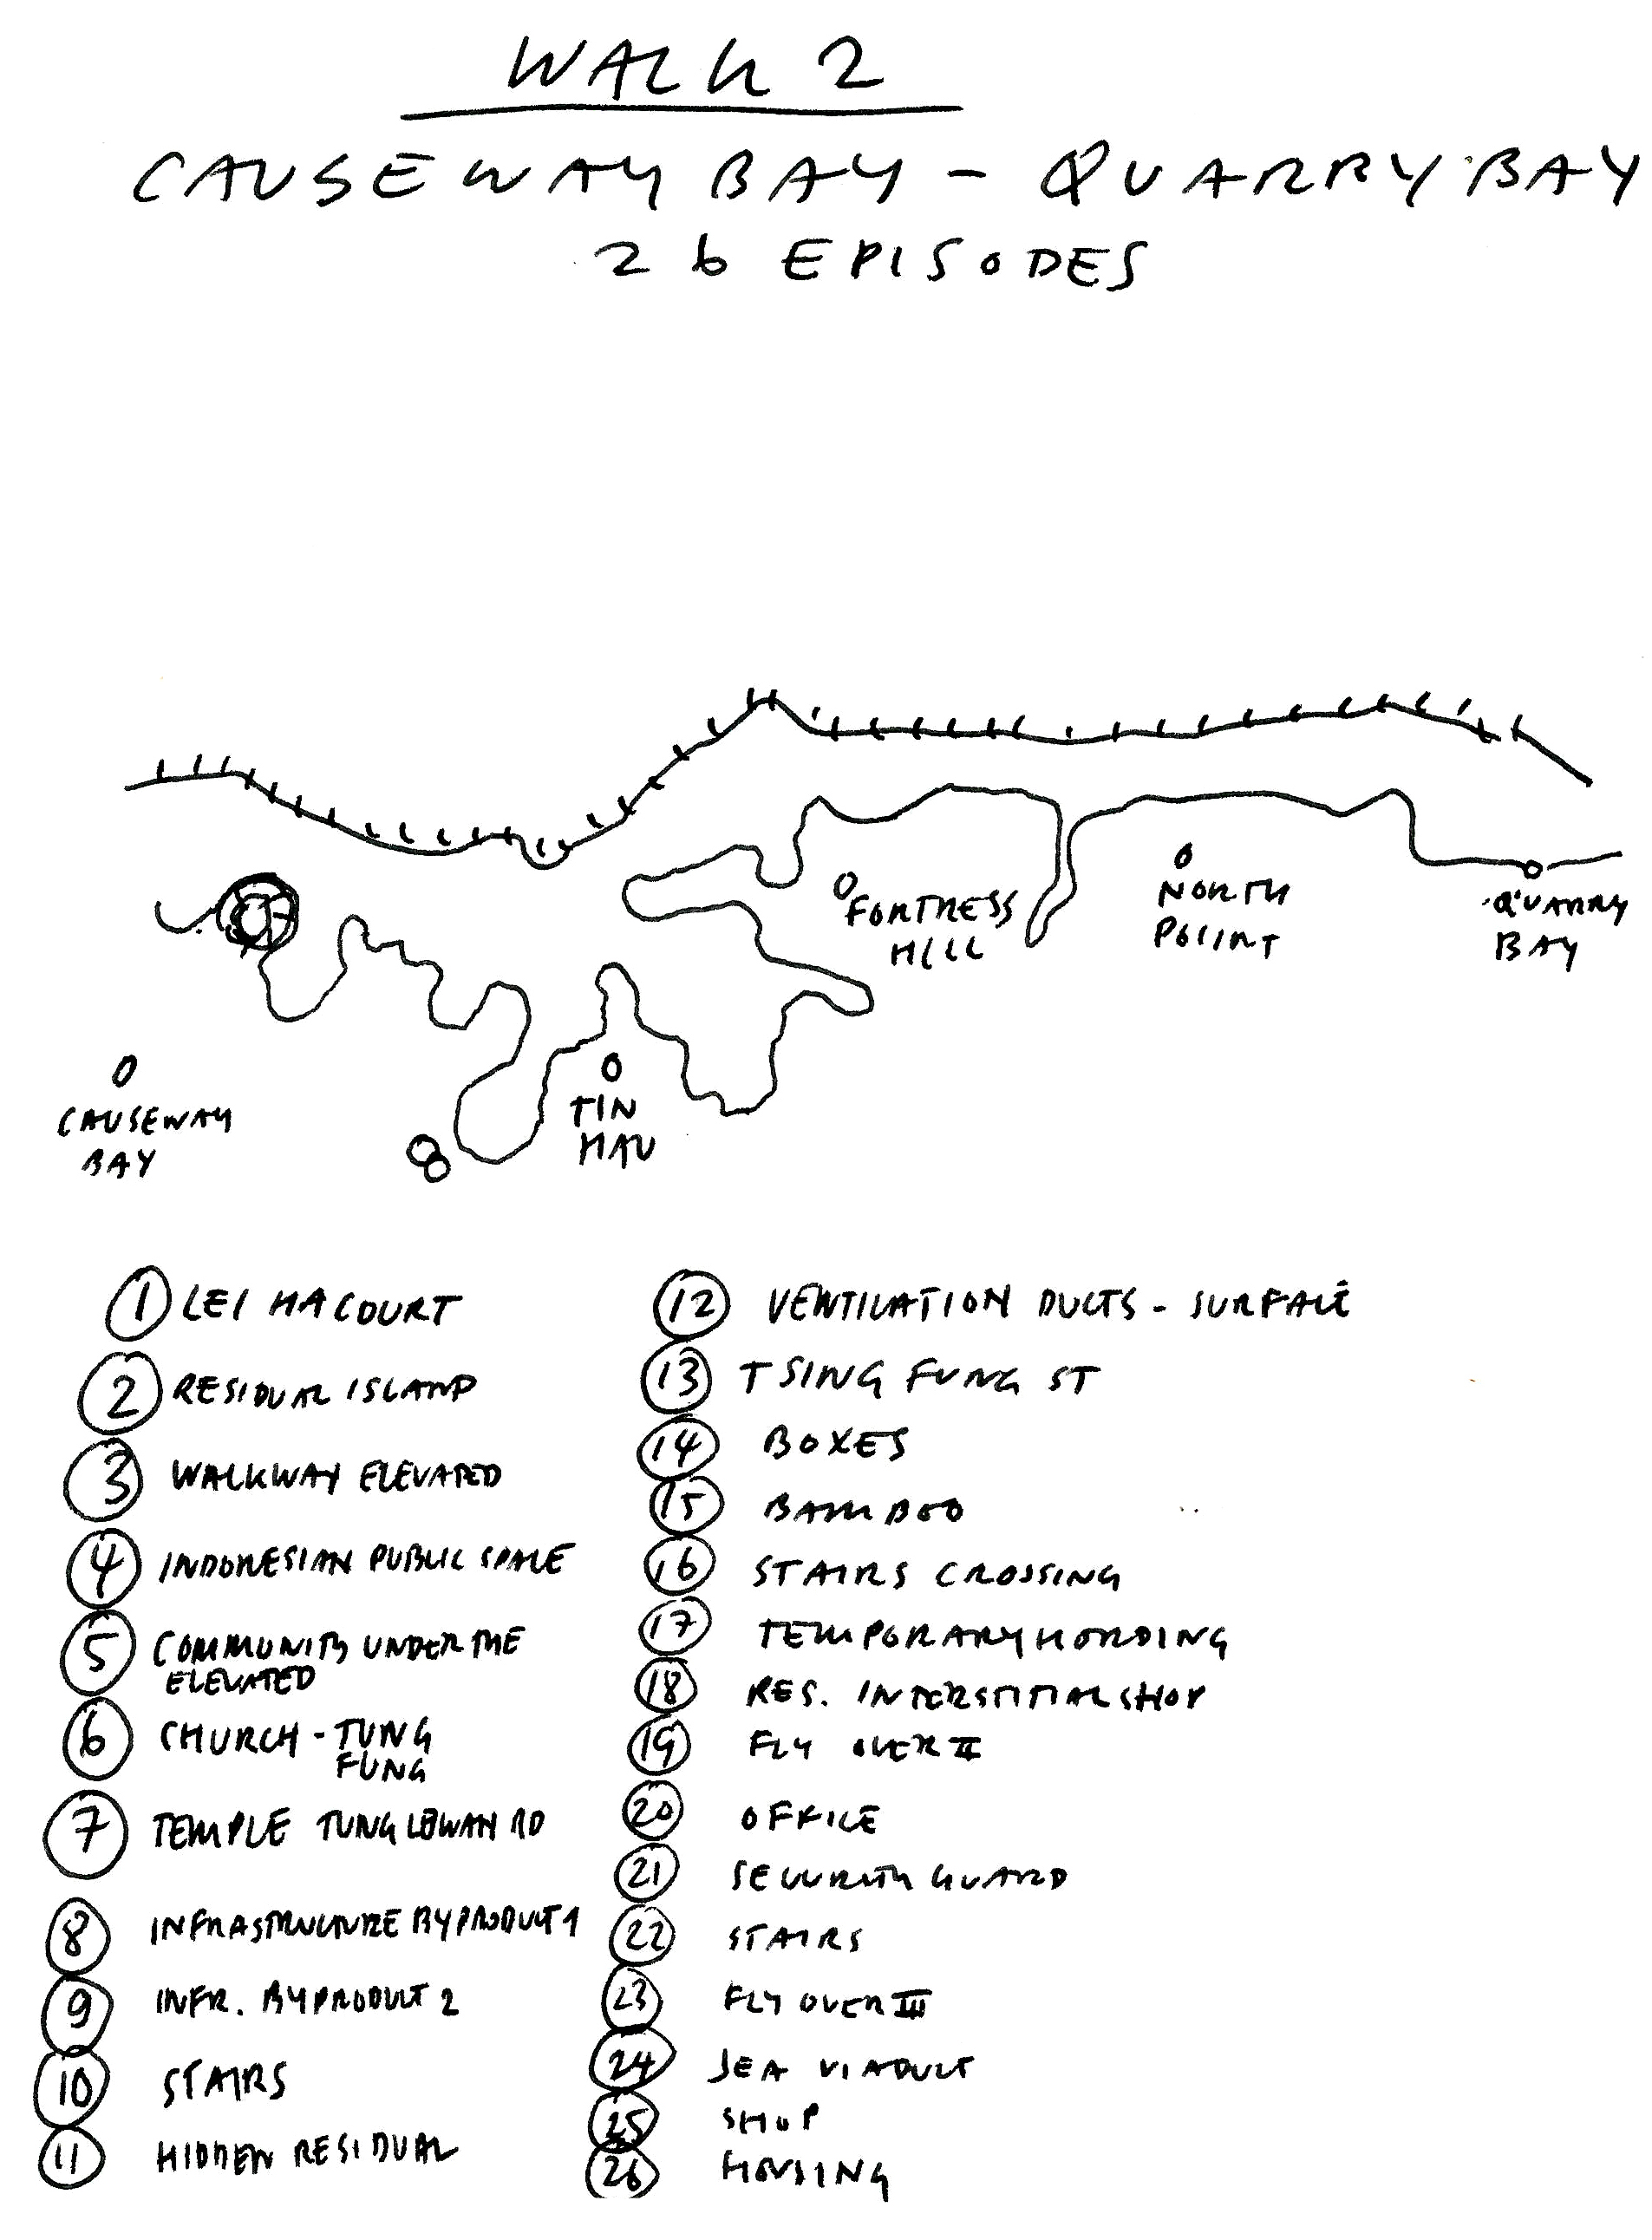 WALK 2
CAUSEWAY BAY - QUARRY BAY
26 EPISODES
FORTRESS
HILL
NORTH
POIINT
QUARRY
BAY
CAUSEWAY
BAY
TIN
HAU
8
1 LEI HA COURT
2 RESIDUAL ISLAND
3 WALKWAY ELEVATED
4 INDONESIAN PUBLIC SPACE
5 COMMUNITY UNDER THE
ELEVATED
6 CHURCH - TUNG
FUNG
7 TEMPLE TUNG LOWAN RD
8 INFRASTRUCTURE BYPRODUCT 1
9 INFR. BYPRODUCT 2
10 STAIRS
11 HIDDEN RESIDUAL
12 VENTILATION DUCTS - SURFACE
13 TSING FUNG ST
14 BOXES
15 BAMBOO
16 STAIRS CROSSING
17 TEMPORARY HORDING
18 RES. INTERSTITIAL SHOP
19 FLY OVER II
20 OFFICE
21 SECURITY GUARD
22 STAIRS
23 FLY OVER III
24 SEA VIADUCT
25 SHOP
26 HOUSING